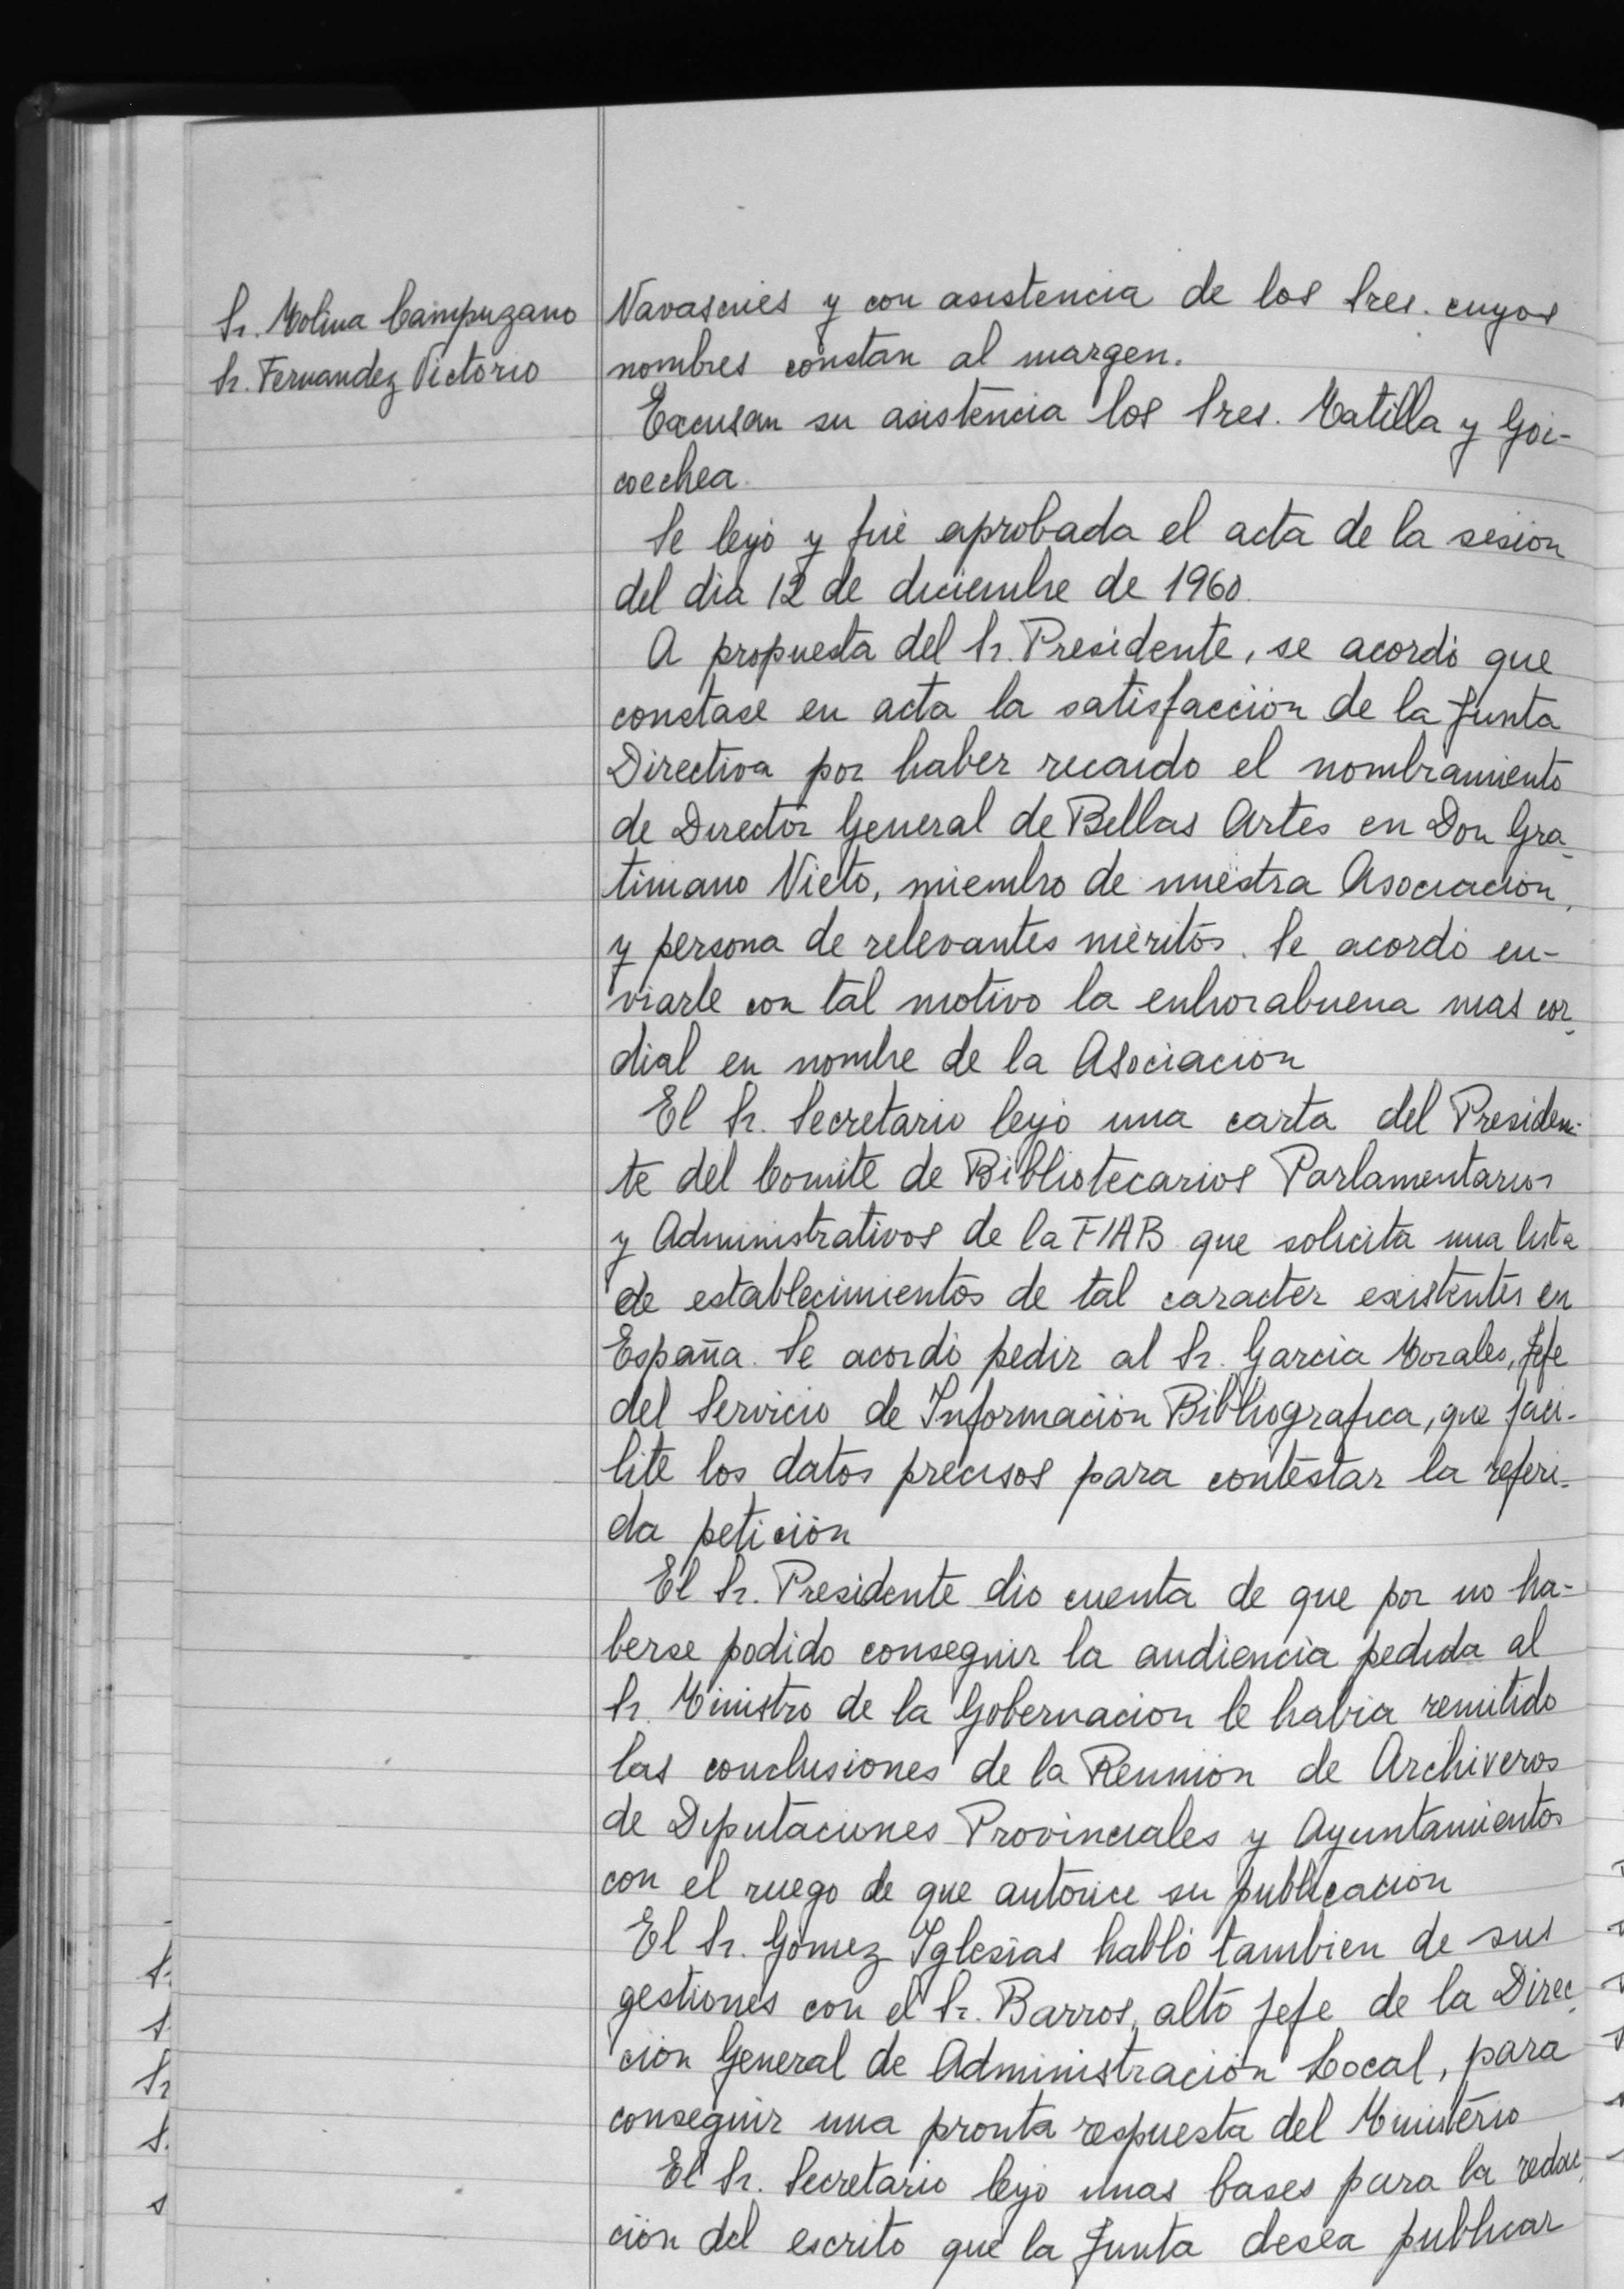 Sr. Molina Campuzano
Sr. Fernandez Victorio
Navascués y con asistencia de los Sres. cuyos
nombres constan al margen.
Excusan su asistencia los Sres. Matilla y Goi-
coechea.
Se leyó y fué aprobada el acta de la sesión
del dia 12 de diciembre de 1960.
A propuesta del Sr. Presidente, se acordó que
constase en acta la satisfacción de la Junta
Directiva por haber recaido el nombramiento
de Director General de Bellas Artes en Don Gra-
tiniano Nieto, miembro de nuestra Asociación,
y persona de relevantes méritos. Se acordó en-
viarle con tal motivo la enhorabuena mas cor-
dial en nombre de la Asociación
El Sr. Secretario leyó una carta del Presiden-
te del Comité de Bibliotecarios Parlamentarios
y Administrativos de la FIAB que solicita una lista
de establecimientos de tal caracter existentes en
España. Se acordó pedir al Sr. García Morales, Jefe
del Servicio de Información Bibliografica, que faci-
lite los datos precisos para contestar la referi-
da petición
El Sr. Presidente dio cuenta de que por no ha-
berse podido conseguir la audiencia pedida al
Sr. Ministro de la Gobernación le habia remitido
las conclusiones de la Reunión de Archiveros
de Diputaciones Provinciales y Ayuntamientos
con el ruego de que autorice su publicación
El Sr. Gómez Iglesias habló tambien de sus
gestiones con el Sr. Barros, alto jefe de la Direc-
ción General de Administración Local, para
conseguir una pronta respuesta del Ministerio
El Sr. Secretario leyó unas bases para la redac-
ción del escrito que la Junta desea publicar